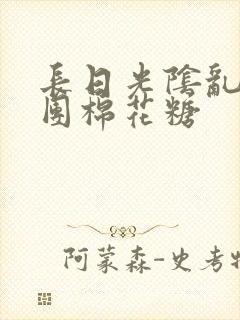 長日光陰亂
團棉花糖
阿蒙森-史考特